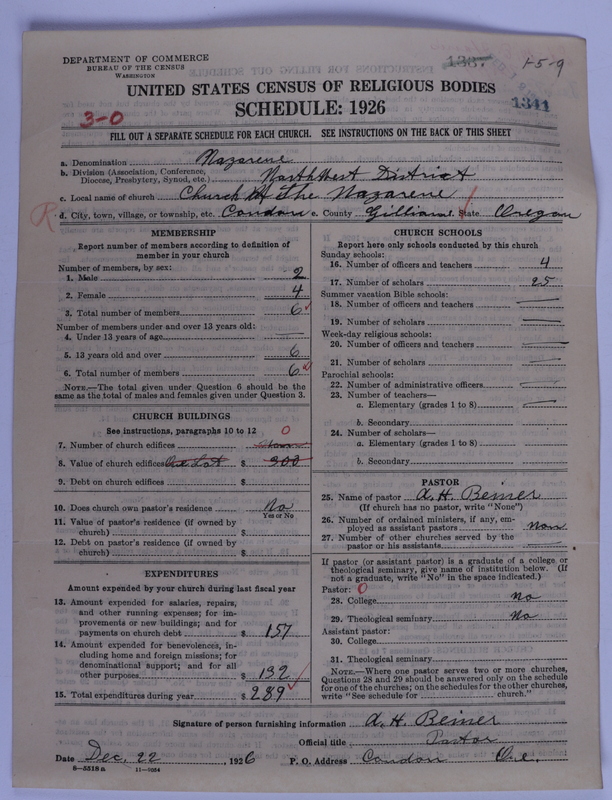 DEPARTMENT OF COMMERCE
BUREAU OF THE CENSUS
WASHINGTON
1-5-9
UNITED STATES CENSUS OF RELIGIOUS BODIES
SCHEDULE: 1926
1341
3-0
FILL OUT A SEPARATE SCHEDULE FOR EACH CHURCH. SEE INSTRUCTIONS ON THE BACK OF THIS SHEET
a. Denomination Nazarene
b. Division (Association, Conference, Diocese, Presbytery, Synod, etc.) NorthWest District
c. Local name of church Church of The Nazarene
R d. City, town, village, or township, etc. Condon e. County Gilliam State Oregon
MEMBERSHIP
Report number of members according to definition of
member in your church
Number of members, by sex:
1. Male 2
2. Female 4
3. Total number of members 6
Number of members under and over 13 years old:
4. Under 13 years of age —
5. 13 years old and over 6
6. Total number of members 6
NOTE.—The total given under Question 6 should be
same as the total of males and females given under Question 3.
CHURCH BUILDINGS
See instructions, paragraphs 10 to 12 0
7. Number of church edifices
8. Value of church edifices One Lot $ 300
9. Debt on church edifices $
10. Does church own pastor's residence No
Yes or No
11. Value of pastor's residence (if owned by
church) $
12. Debt on pastor's residence (if owned by
church) $
EXPENDITURES
Amount expended by your church during last fiscal year
13. Amount expended for salaries, repairs,
and other running expenses; for im-
provements or new buildings; and for
payments on church debt $ 157
14. Amount expended for benevolences, in-
cluding home and foreign missions; for
denominational support; and for all
other purposes $ 132
15. Total expenditures during year $ 289
CHURCH SCHOOLS
Report here only schools conducted by this church
Sunday schools:
16. Number of officers and teachers 4
17. Number of scholars 25
Summer vacation Bible schools:
18. Number of officers and teachers —
19. Number of scholars —
Week-day religious schools:
20. Number of officers and teachers —
21. Number of scholars —
Parochial schools:
22. Number of administrative officers —
23. Number of teachers—
a. Elementary (grades 1 to 8) —
b. Secondary
24. Number of scholars—
a. Elementary (grades 1 to 8)
b. Secondary
PASTOR
25. Name of pastor A. H. Beiner
(If church has no pastor, write "None")
26. Number of ordained ministers, if any, em-
ployed as assistant pastors None
27. Number of other churches served by the
pastor or his assistants —
If pastor (or assistant pastor) is a graduate of a college or
theological seminary, give name of institution below. (If
not a graduate, write "No" in the space indicated.)
Pastor: 0
28. College No
29. Theological seminary No
Assistant pastor:
30. College
31. Theological seminary
NOTE.—Where one pastor serves two or more churches,
Questions 28 and 29 should be answered only on the schedule
for one of the churches; on the schedules for the other churches,
write "See schedule for church."
Signature of person furnishing information A. H. Beiner
Official title Pastor
Date Dec. 22, 1926 P. O. Address Condon Ore.
8-5518a 11-9054